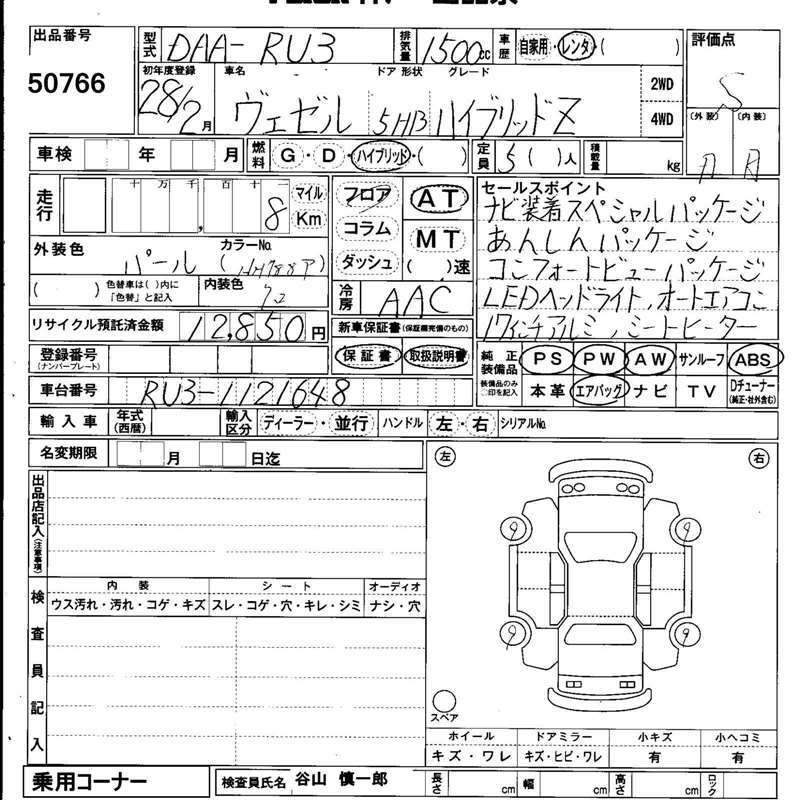 出品番号
50766
型式 DAA-RU3
排気量 1500cc
車歴 自家用・レンタ・( )
評価点
S
〔外装〕 〔内装〕
A A
初年度登録 車名 ドア 形状 グレード
28/2月 ヴェゼル 5HB ハイブリッドZ
2WD
4WD
車検 年 月
燃料 G・D・ハイブリッド・( )
定員 5( )人
積載量 kg
走行 十万千百十一
8
マイル
Km
フロア
コラム
ダッシュ
AT
MT
( )速
セールスポイント
ナビ装着スペシャルパッケージ
あんしんパッケージ
コンフォートビューパッケージ
LEDヘッドライト,オートエアコン
17インチアルミ,シートヒーター
外装色 カラーNo.
パール
( ) 色替車は( )内に「色替」と記入
内装色
冷房 AAC
リサイクル預託済金額 12,850円
新車保証書(保証継続完備のもの)
保証書 取扱説明書
登録番号
(ナンバープレート)
純正装備品
装備品のみ○印を記入
PS PW AW サンルーフ ABS
本革 エアバッグ ナビ TV Dチューナー
(純正・社外含む)
車台番号 RU3-1121648
輸入車 年式(西暦) 輸入区分 ディーラー・並行 ハンドル 左・右 シリアルNo.
名変期限 月 日迄
左 右
出品店記入(注意事項)
9 9
9 9
検査員記入
内装 シート オーディオ
ウス汚れ・汚れ・コゲ・キズ スレ・コゲ・穴・キレ・シミ ナシ・穴
スペア
ホイール ドアミラー 小キズ 小ヘコミ
キズ・ワレ キズ・ヒビ・ワレ 有 有
乗用コーナー
検査員氏名 谷山 慎一郎
長さ cm 幅 cm 高さ cm ロック